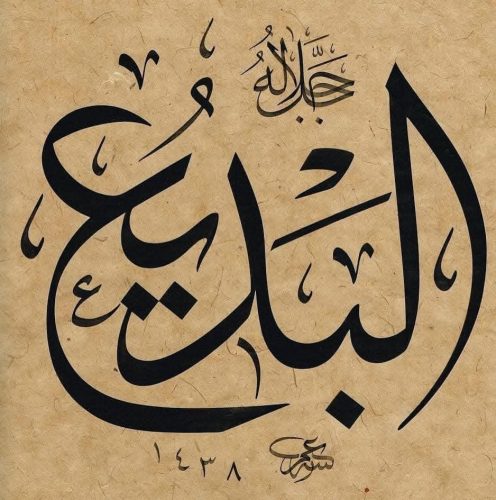 جل جلاله
البديع
١٤٣٨